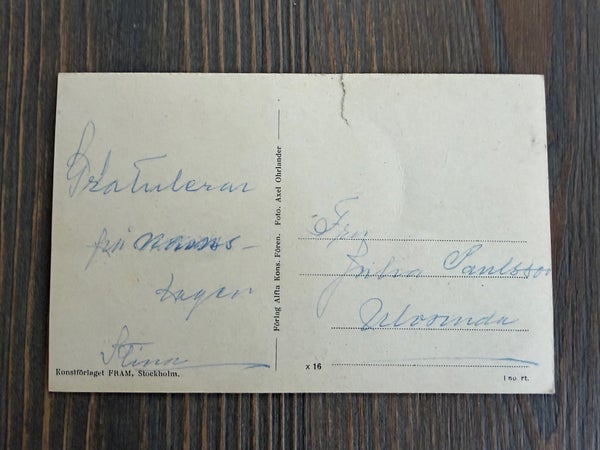 Gratulerar
på namns-
dagen
Stina
Konstförlaget FRAM, Stockholm.
Förlag Alfta Kons. Fören. Foto. Axel Ohrlander
Fru
Julia Paulsson
x 16